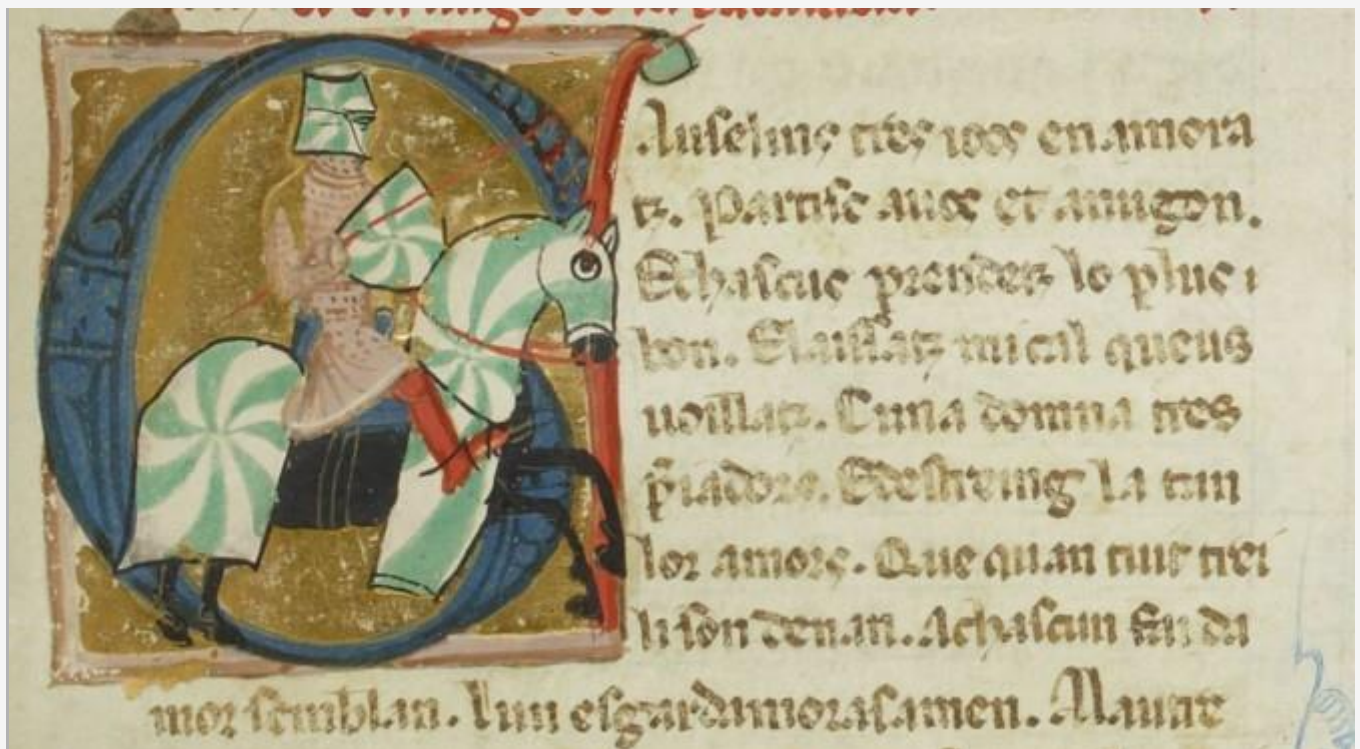 Gauselms tres iocs en amora
tz. partisc auos et anugon.
Echascus prendetz lo plus
bon. Elaissatz mical queus
uoillatz. Cuna domna tres
p̃iadors. Edestreing la tan
lor amors. Que quan tuit trei
li son denan. Achascun fai da
mor semblan. Lun esgardamorasamen. Alautre